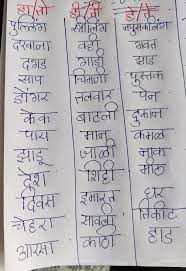 डा/तो डी/ती डा/ते
पुल्लिंग स्त्रीलिंग नपुसकलिंग
दरवाजा वही भवन
दगड गाडी झाड
साप विमानी पुस्तक
डोंगर तलवार पेन
केक बाटली दुकान
पारा मान कमळ
झाडू जाळी नाक
देश शिटी मीठ
दिवस इमारत घर
चेहरा सावली तिकीट
आरसा काठी हाड